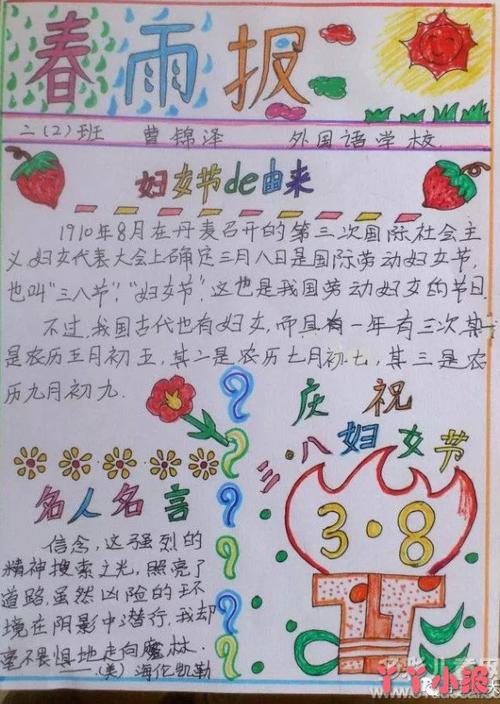 春雨报
二(2)班 曹锦泽 外国语学校
妇女节de由来
1910年8月在丹麦召开的第三次国际社会主
义妇女代表大会上确定三月八日是国际劳动妇女节,
也叫“三八节”,“妇女节”,这也是我国劳动妇女的节日.
不过,我国古代也有妇女,而具有一年有三次,其一
是农历五月初五,其二是农历七月初七,其三是农
历九月初九.
庆祝
三·八妇女节
3·8
名人名言
信念,这强烈的
精神搜索之光,照亮了
道路,虽然凶险的环
境在阴影中潜行,我却
毫不畏惧地走向魔林.
(美)海伦凯勒
丫丫小报